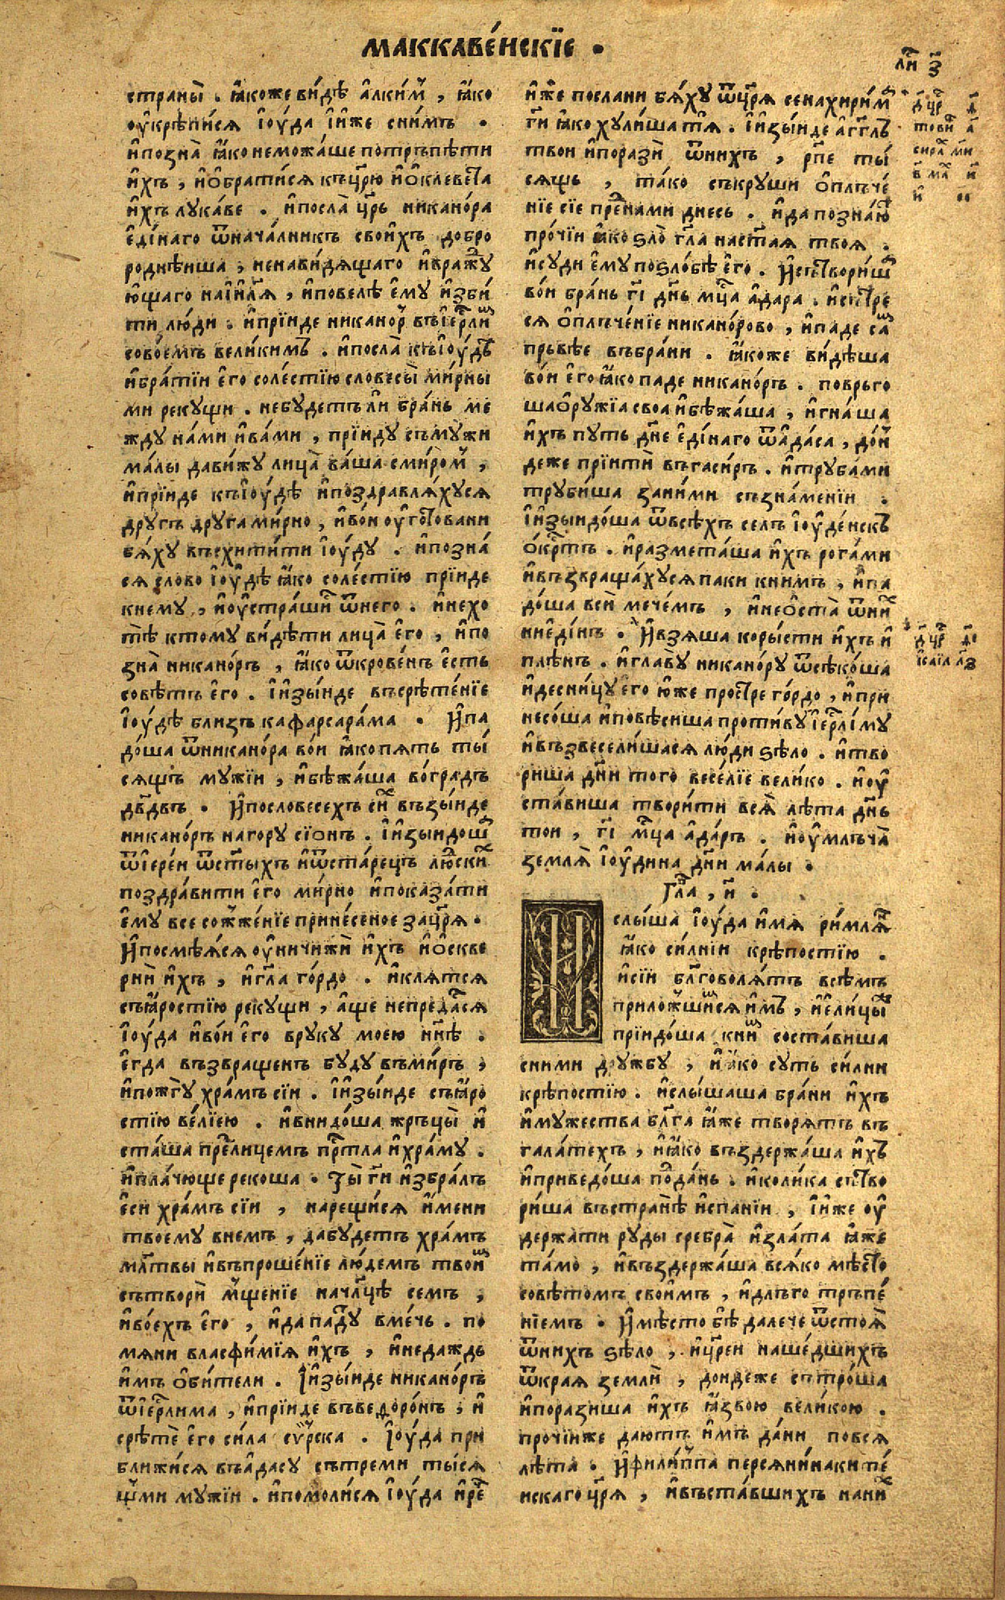 маккаве́йскїе .
л҃и з҃
страны̀ . ꙗ҆́коже ви́дѣ а҆лки́м , ꙗ҆́ко
ѹ҆крѣпи́сѧ і҆ѹ́да и҆и҆́же сни́мъ .
и҆позна̀ ꙗ҆́ко немо́жаше потръпѣ́ти
и҆́хъ , и҆ѻ҆брати́сѧ къцр҃ю и҆ѻ҆клевета̀
и҆́хъ лука́ве . и҆посла̀ цр҃ь никано́ра
е҆ди́наго ѿнача́лникъ свои́хъ добро
родне́йша , ненави́дѧщаго и҆вражду
ю҆щаго наі҆и҃лѧ , и҆повелѣ̀ е҆мѹ и҆зби́
ти лю́ди . и҆прїи́де никано́р въі҆ер҃ли
сово́емъ вели́кимъ . и҆посла̀ кꙋі҆ѹ́дѣ
и҆бра́тїи е҆го̀ соле́стїю словесы̀ ми́рны
ми рекѹщи . небѹ́детъ лѝ бра́нь ме
ждѹ на́ми и҆ва́ми , прїи́дѹ съмѹ́жи
ма́лы дави́жѹ лица̀ ва́ша сми́ром ,
и҆прїи́де къі҆ѹ́дѣ и҆поздравлѧ́хѹсѧ
дрѹ́гъ дрѹ́га ми́рно , и҆во́и ѹ҆гото́вани
бѧ́хѹ въсхити́ти і҆ѹ́дѹ . и҆позна́
сѧ сло́во і҆ѹ́дѣ ꙗ҆́ко соле́стїю прїи́де
кнемѹ , и҆ѹ҆страши́ ѿнего̀ . и҆нехо
тѣ̀ ктомѹ ви́дѣти лица̀ е҆го̀ , и҆по
зна̀ никано́ръ , ꙗ҆́ко ѿкрове́нъ е҆́сть
совѣ́тъ е҆го̀ . и҆и҆зы́иде въсрѣте́нїе
і҆ѹ́дѣ бли́зъ кафарсара́ма . и҆па
до́ша ѿникано́ра во́и ꙗ҆́копѧть ты́
сѧщъ мѹ́жїи , и҆бѣжа́ша во́градъ
дв҃двъ . и҆пословесе́хъ си́х възы́иде
никано́ръ нагорѹ сїо́нъ . и҆и҆зыидо́ш
ѿі҆ере́и ѿст҃ы́хъ и҆ѿста́рецъ лю́ски
поздра́вити е҆го̀ ми́рно и҆показа́ти
е҆мѹ все сожже́нїе принесе́ное зацр҃ѧ .
и҆посмѣѧ́сѧ ѹ҆ничижѝ и҆́хъ и҆ѻ҆скве
рнѝ и҆́хъ , и҆гл҃а го́рдо . и҆клѧ́тсѧ
съꙗ҆́ростїю рекѹ́щи , а҆́ще непреда́сѧ
і҆ѹ́да и҆во́и е҆го̀ врѹкѹ моею нн҃ѣ .
е҆гда възвраще́нъ бѹдѹ въми́ръ ,
и҆пожгѹ̀ хра́мъ сїи . и҆и҆зы́иде съꙗ҆́ро
стїю ве́лїею . и҆внидо́ша жръцы̀ и҆
ста́ша прелице́мъ прⷭ҇тла и҆хра́мѹ .
и҆пла́чюще рекоша . ты̀ гⷭ҇и и҆збра́лъ
е҆сѝ хра́мъ сїи , нарещи́сѧ и҆́мени
твоемѹ внемъ , дабѹдетъ хра́мъ
мл҃твы и҆въпроше́нїе лю́демъ твои́
сътворѝ мще́нїе начл҃цѣ семъ ,
и҆во́ехъ е҆го̀ , и҆да падѹ́ вме́чь . по
мѧнѝ власфимїѧ и҆́хъ , и҆неда́ждь
и҆́мъ ѻ҆би́тели . и҆и҆зы́иде никано́ръ
ѿі҆ер҃лима , и҆прїи́де въведоро́нъ , и҆
срѣ́те е҆го̀ си́ла сѵ́рска . і҆ѹ́да при
бли́жисѧ въа҆да́сѹ сътремѝ ты́сѧ
щми мѹ́жїи . и҆помоли́сѧ і҆ѹ́да и҆ре
и҆́же посланѝ бѧ́хѹ ѿцр҃ѧ сенахири́м
гⷭ҇и ꙗ҆́ко хѹ́лиша тѧ̀ . и҆и҆зы́иде а҆́гг҃лъ
твои и҆поразѝ ѿни́хъ , рп҃е ты́
сѧщь , та́ко съкрѹшѝ ѻ҆плъче́
нїе сїе преⷣна́ми дне́сь . и҆да позна́ю
про́чїи ꙗ҆́ко ѕло̀ гл҃а наст҃аѧ твоѧ .
и҆сѹдѝ е҆мѹ поѕло́бѣ е҆го̀ . и҆сътвори́ш
во́и бра́нь г҃і дн҃ь мцⷭ҇а а҆да́ра . и҆сътре
сѧ ѻ҆плъче́нїе никано́рово , и҆паде са́
пръвѣе въбра́ни . ꙗ҆́коже ви́дѣша
во́и е҆го̀ ꙗ҆́ко паде никано́ръ . повръго
шаѻ҆рѹжїа своа и҆бѣжа́ша , и҆гна́ ша
и҆́хъ пѹ́ть дн҃е е҆ди́наго ѿа҆да́са , до́и
деже прїи́ти въгаси́ръ . и҆трѹба́ми
трѹби́ша зани́ми съзна́менїи .
и҆и҆зыидо́ша ѿвсѣ́хъ се́лъ і҆ѹде́искъ
ѻ҆́кртъ . и҆размета́ша и҆́хъ рога́ми
и҆възвраща́хѹсѧ паки кни́мъ , и҆па
до́ша всѝ мече́мъ , и҆неѻ҆ста̀ ѿни́х
ниеди́нъ . и҆взѧ́ша коры́сти и҆́хъ и҆
плѣ́нъ . и҆главѹ̀ никано́рѹ ѿсѣко́ша
и҆десни́цѹ е҆го̀ ю҆́же простре го́рдо , и҆при
несо́ша и҆повѣ́сиша проти́вѹ і҆ер҃ли́мѹ
и҆възвесели́шасѧ лю́ди ѕѣло̀ . и҆тво
ри́ша дн҃и того весе́лїе вели́ко . и҆ѹ҆
ста́виша твори́ти всѧ̀ лѣ́та дн҃ь
тои , г҃і мцⷭ҇а а҆да́ръ . и҆ѹ҆млъча̀
землѧ̀ і҆ѹ́дина дн҃и ма́лы .
гл҃а , и҃ .
И слы́ша і҆ѹ́да и҆́мѧ ри́млѧ
ꙗ҆́ко си́лнїи крѣ́постїю .
и҆сїи бл҃говолѧ́тъ всѣ́мъ
приложшиⷨсѧ и҆́мъ , и҆е҆ли́цы
прїидо́ша кним соста́виша
сни́ми дрѹжбѹ , и҆ꙗ҆́ко сѹть си́лни
крѣ́постїю . и҆слы́шаша бра́ни и҆́хъ
и҆мѹ́жества бл҃га ꙗ҆́же творѧ́тъ въ
гала́техъ , и҆ꙗ҆́ко въздержа́ша и҆́хъ
и҆приведо́ша поⷣда́нь . и҆коли́ка сътво
ри́ша въстранѣ̀ и҆спа́нїи , и҆и҆́же ѹ҆
держа́ти рѹды сребра̀ и҆зла́та ꙗ҆́же
та́мо , и҆въздержа́ша всѧко мѣ́сто
совѣ́томъ свои́мъ , и҆длъго тръпе́
нїемъ . и҆мѣсто бѣ̀ дале́че ѿстоѧ̀
ѿни́хъ ѕѣло , и҆цр҃еи наше́дшихъ
ѿкраѧ землѝ , донде́же сътро́ша
и҆порази́ша и҆́хъ ꙗ҆́звою вели́кою .
прочїи́же даю́тъ и҆́мъ да́ни повсѧ
лѣ́та . и҆фили́ппа персѧни́наки пе́
искаго цр҃ѧ , и҆въста́вшихъ нани́х